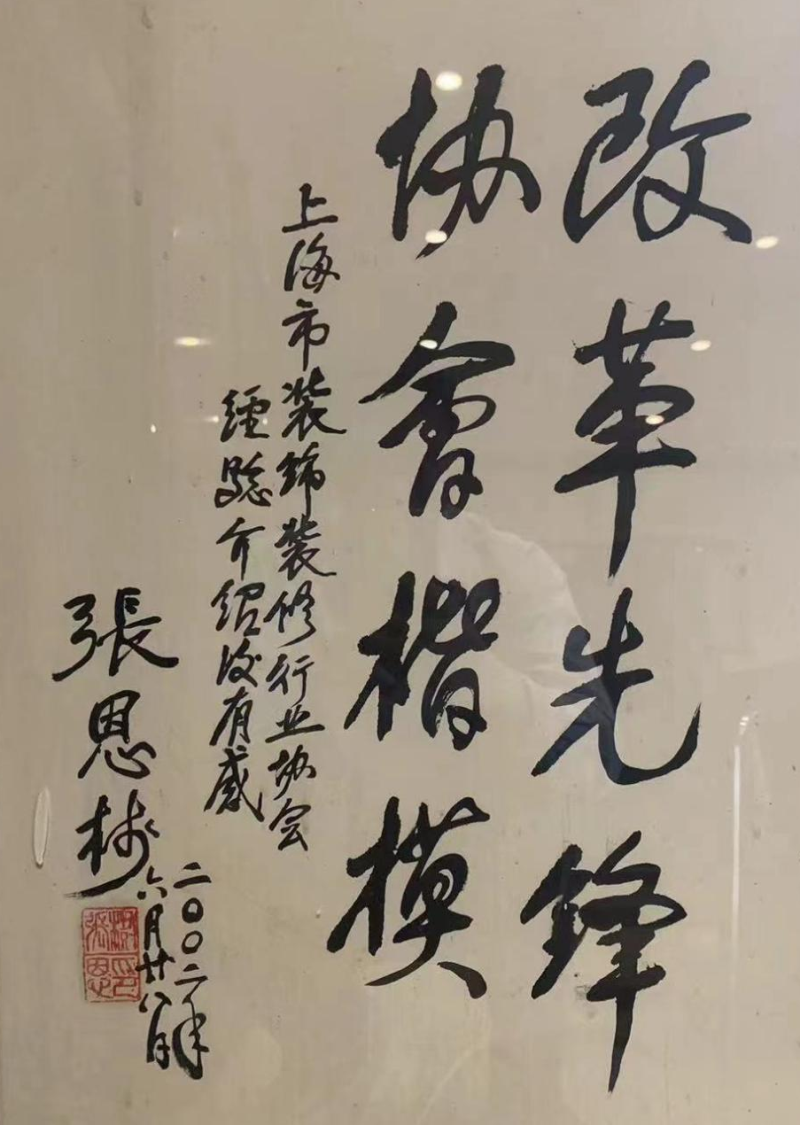 改革先鋒
协會楷模
上海市装飾装修行业协会
經驗介紹後有感
張恩树
二〇〇二年
六月廿八日